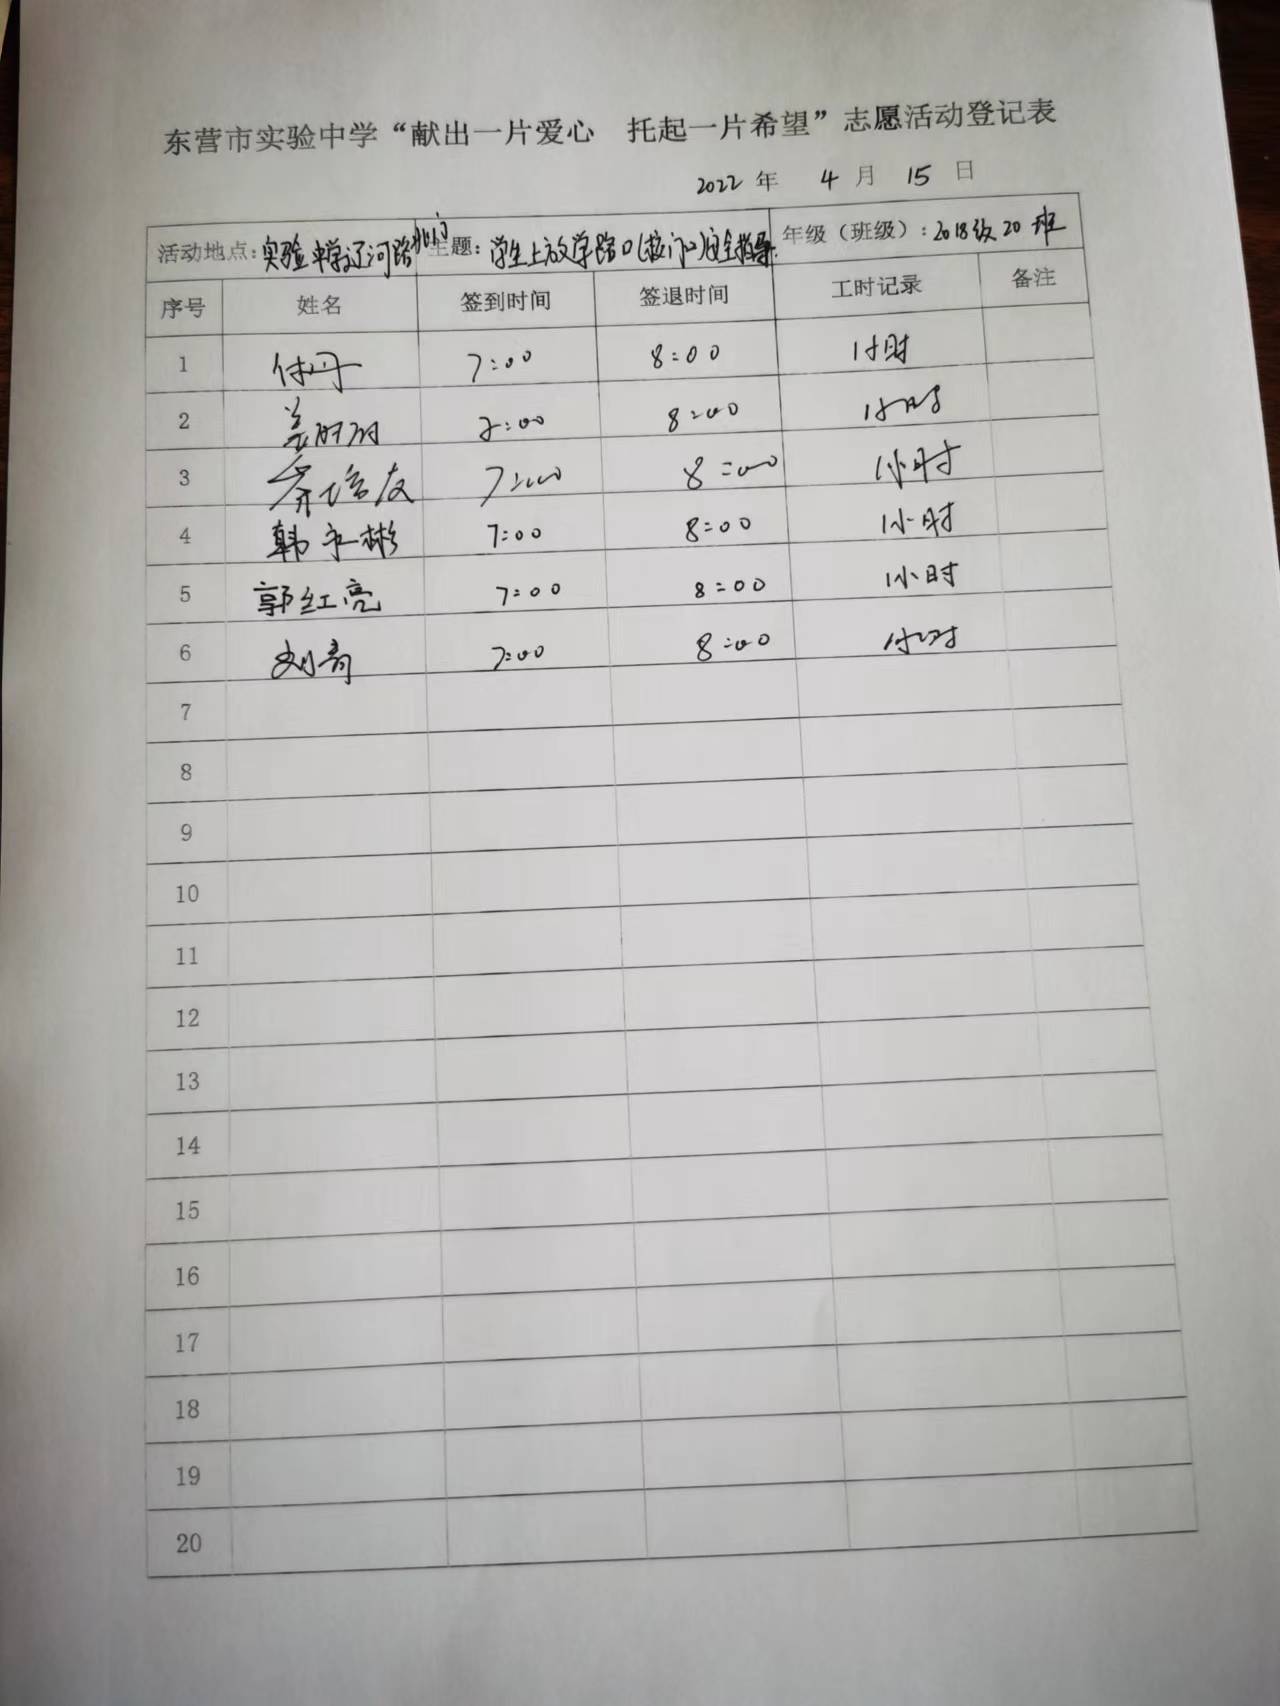 东营市实验中学“献出一片爱心 托起一片希望”志愿活动登记表
2022 年 4 月 15 日
活动地点：实验中学辽河路北门 主题：学生上放学路口(校门口)安全指导 年级（班级）：2018级20班
序号 姓名 签到时间 签退时间 工时记录 备注
1 付丹 7:00 8:00 1小时
2 7:00 8:00 1小时
3 7:00 8:00 1小时
4 韩永彬 7:00 8:00 1小时
5 郭红亮 7:00 8:00 1小时
6 刘青 7:00 8:00 1小时
7
8
9
10
11
12
13
14
15
16
17
18
19
20